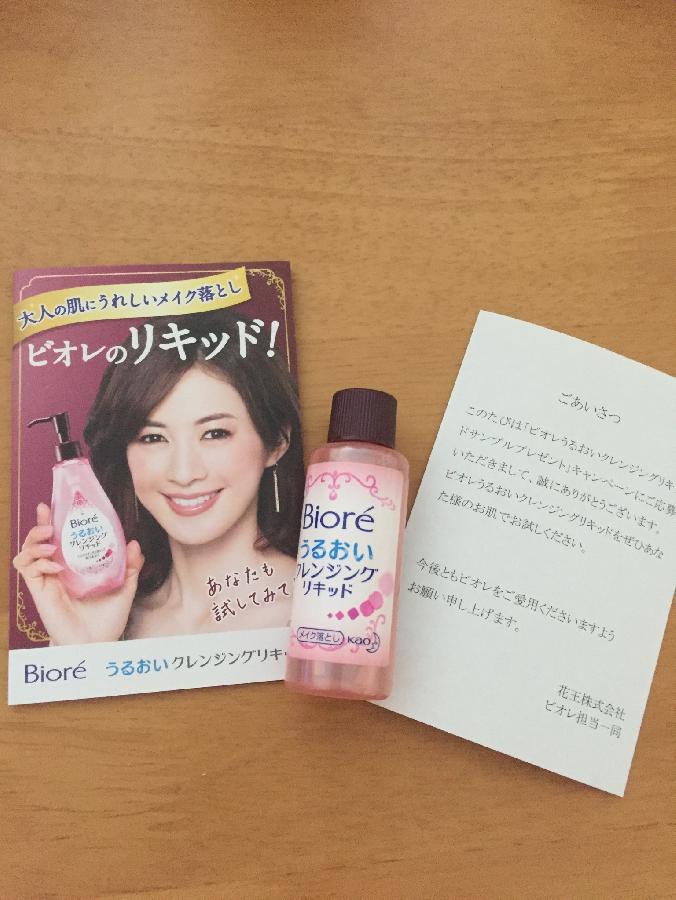 大人の肌にうれしいメイク落とし
ビオレのリキッド!
Bioré
うるおい
クレンジング
リキッド
あなたも
試してみて
Bioré うるおいクレンジングリキ
Bioré
うるおい
クレンジング
リキッド
メイク落とし Kao
ごあいさつ
このたびは「ビオレうるおいクレンジングリキッ
ドサンプルプレゼント」キャンペーンにご応募
いただきまして、誠にありがとうございます。
ビオレうるおいクレンジングリキッドをぜひあな
た様のお肌でお試しください。
今後ともビオレをご愛用くださいますよう
お願い申し上げます。
花王株式会社
ビオレ担当一同